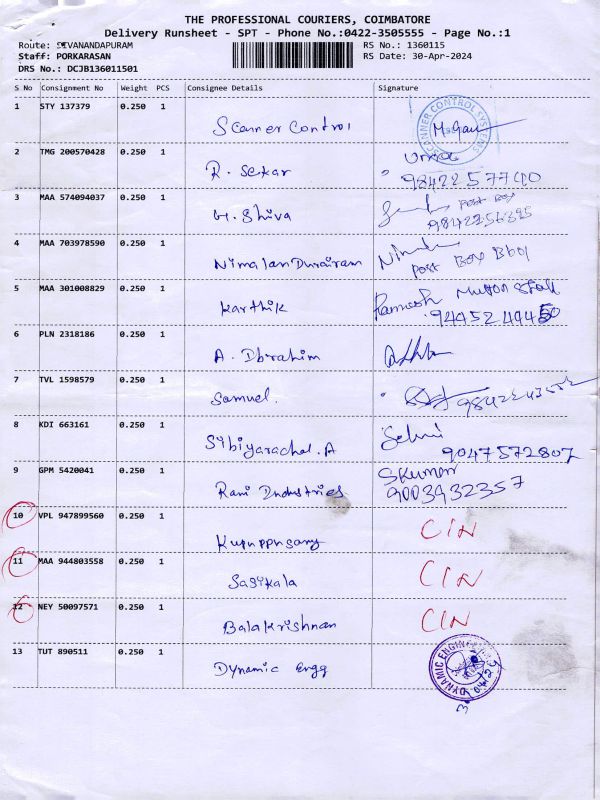 THE PROFESSIONAL COURIERS, COIMBATORE
Delivery Runsheet - SPT - Phone No.:0422-3505555 - Page No.:1
Route: SIVANANDAPURAM RS No.: 1360115
Staff: PORKARASAN RS Date: 30-Apr-2024
DRS No.: DCJB136011501
S No Consignment No Weight PCS Consignee Details Signature
1 STY 137379 0.250 1
Scanner Control M.Gau
SCANNER CONTROL SYSTEMS
2 TMG 200570428 0.250 1
R. Sekar 98422 57740
3 MAA 574094037 0.250 1 Post Box
H. Shiva 9842256325
4 MAA 703978590 0.250 1
Nimalan Durairam Post Box Bboy
5 MAA 301008829 0.250 1
Karthik Ramesh Mutton Stall
9445249450
6 PLN 2318186 0.250 1
A. Dbrahim
7 TVL 1598579 0.250 1
Samuel.
8 KDI 663161 0.250 1
Sibiyarachal. A Selvi
9047572807
9 GPM 5420041 0.250 1
Rani Industries SKumar
9003932357
10 VPL 947899560 0.250 1
Kuruppusamy CIN
11 MAA 944803558 0.250 1
Sasikala CIN
12 NEY 50097571 0.250 1
Balakrishnan CIN
13 TUT 890511 0.250 1
Dynamic Engg
DYNAMIC ENGINEE